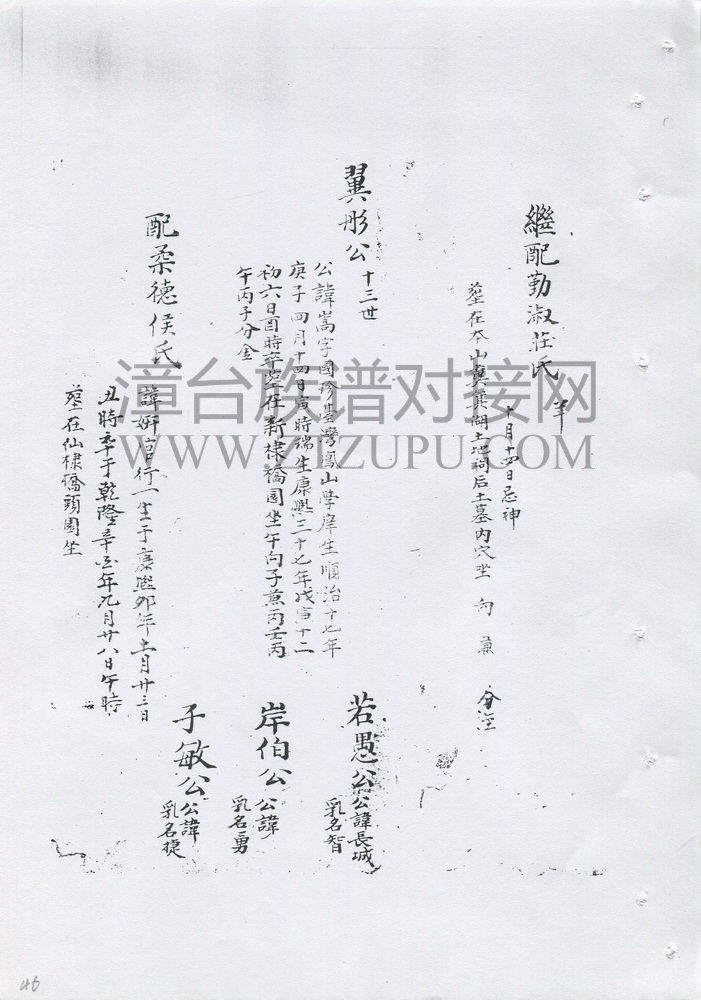 繼配勤淑莊氏
十月十四日忌神
葬在本山糞箕湖土地祠后土墓內穴坐 向 兼 分
翼彤公 十三世
公諱嵩字國珍臺灣鳳山學庠生順治十七年
庚子四月十四日寅時瑞生康熙三十七年戊寅十二
初六日酉時卒葬在新棣橋園坐午向子兼丙壬丙
午丙子分金
若愚公 公諱長城
乳名智
岸伯公 公諱
乳名勇
子敏公 公諱
乳名捷
配柔德侯氏
諱妍官行一生于康熙卯年十一月廿三日
丑時卒于乾隆辛亥年九月廿八日午時
葬在仙棣橋頭園坐
漳台族谱对接网
WWW.ZIZUPU.COM
46